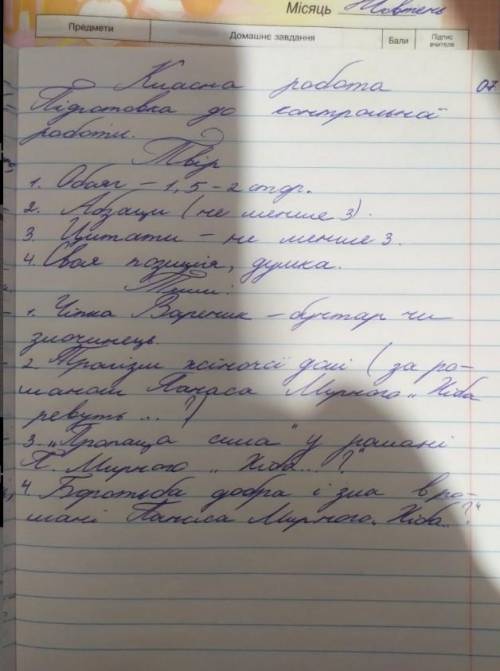 Місяць Жовтень
Предмети Домашнє завдання Бали Підпис вчителя
Класна робота 07
Підготовка до контрольної
роботи.
Твір
1. Обсяг – 1,5 – 2 стор.
2. Абзаци (не менше 3).
3. Цитати – не менше 3.
4. Своя позиція, думка.
Теми:
1. Чіпка Вареник – бунтар чи
злочинець.
2. Трагізм жіночої долі (за ро-
маном Панаса Мирного „Хіба
ревуть ... ?")
3. „Пропаща сила" у романі
П. Мирного „Хіба...?"
4. Боротьба добра і зла в ро-
мані Панаса Мирного „Хіба...?"